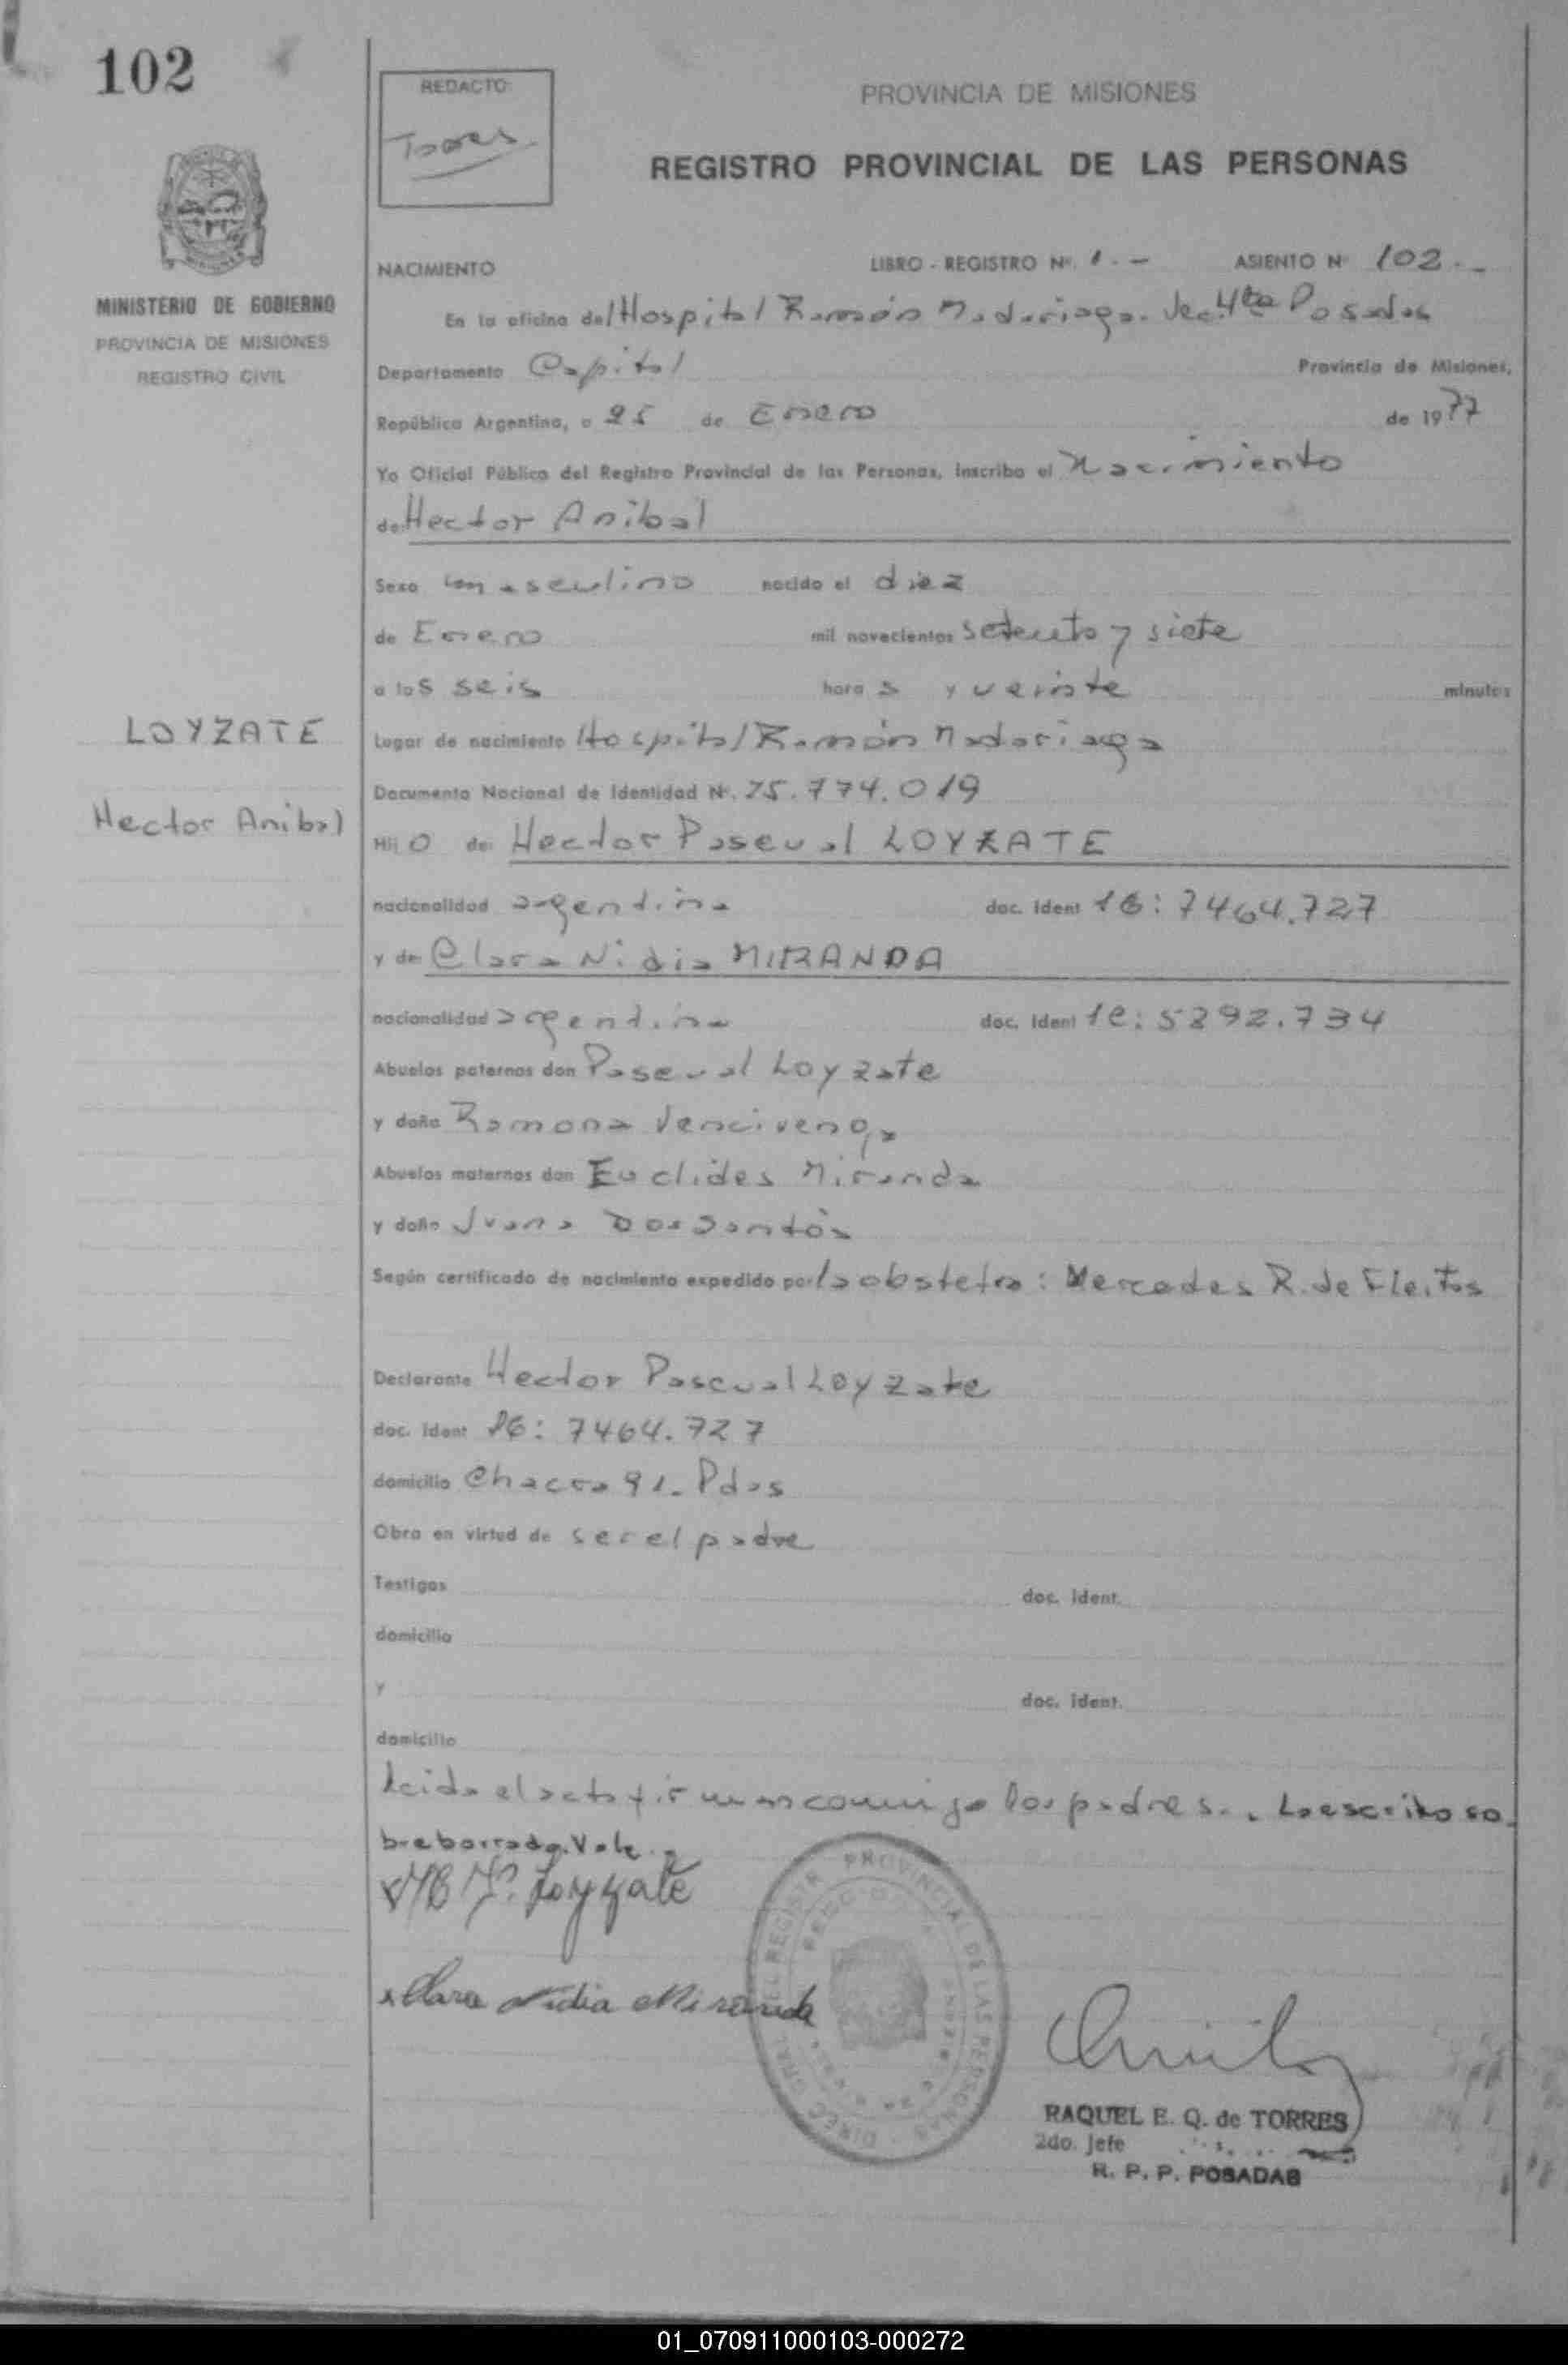 102
REDACTO:
Torres
PROVINCIA DE MISIONES
REGISTRO PROVINCIAL DE LAS PERSONAS
MINISTERIO DE GOBIERNO
PROVINCIA DE MISIONES
REGISTRO CIVIL
NACIMIENTO LIBRO - REGISTRO Nº. 1.- ASIENTO Nº 102.-
En la oficina del Hospital Ramón Madariaga. Sec. 4ta Posadas
Departamento Capital Provincia de Misiones,
República Argentina, a 25 de Enero de 1977
Yo Oficial Público del Registro Provincial de las Personas, inscribo el Nacimiento
de: Hector Anibal
Sexo masculino nacido el diez
de Enero mil novecientos setenta y siete
a las seis horas y veinte minutos
LOYZATE
Lugar de nacimiento Hospital Ramón Madariaga
Documento Nacional de Identidad Nº. 25.774.019
Hector Anibal
Hijo de: Hector Pascual LOYZATE
nacionalidad argentina doc. ident 7464.727
y de: Clara Nidia MIRANDA
nacionalidad argentina doc. ident 734
Abuelos paternos don Pascual Loyzate
y doña Ramona Vencivenga
Abuelos maternos don Euclides Miranda
y doña Juana Dos Santos
Según certificado de nacimiento expedido por la obstetra: Mercedes R. de Fleitas
Declarante Hector Pascual Loyzate
doc. ident 7464.727
domicilio Chacra 91. Pdas
Obra en virtud de ser el padre
Testigos doc. ident.
domicilio
y doc. ident.
domicilio
Leida el acta firman conmigo los padres.. Lo escrito so
bre borrado. Vale.
Loyzate
x Clara Nidia Miranda
DIREC. GRAL. DEL REGISTR. PROVINCIAL DE LAS PERSONAS
RAQUEL E. Q. de TORRES
2do. Jefe
R. P. P. POSADAS
01_070911000103-000272